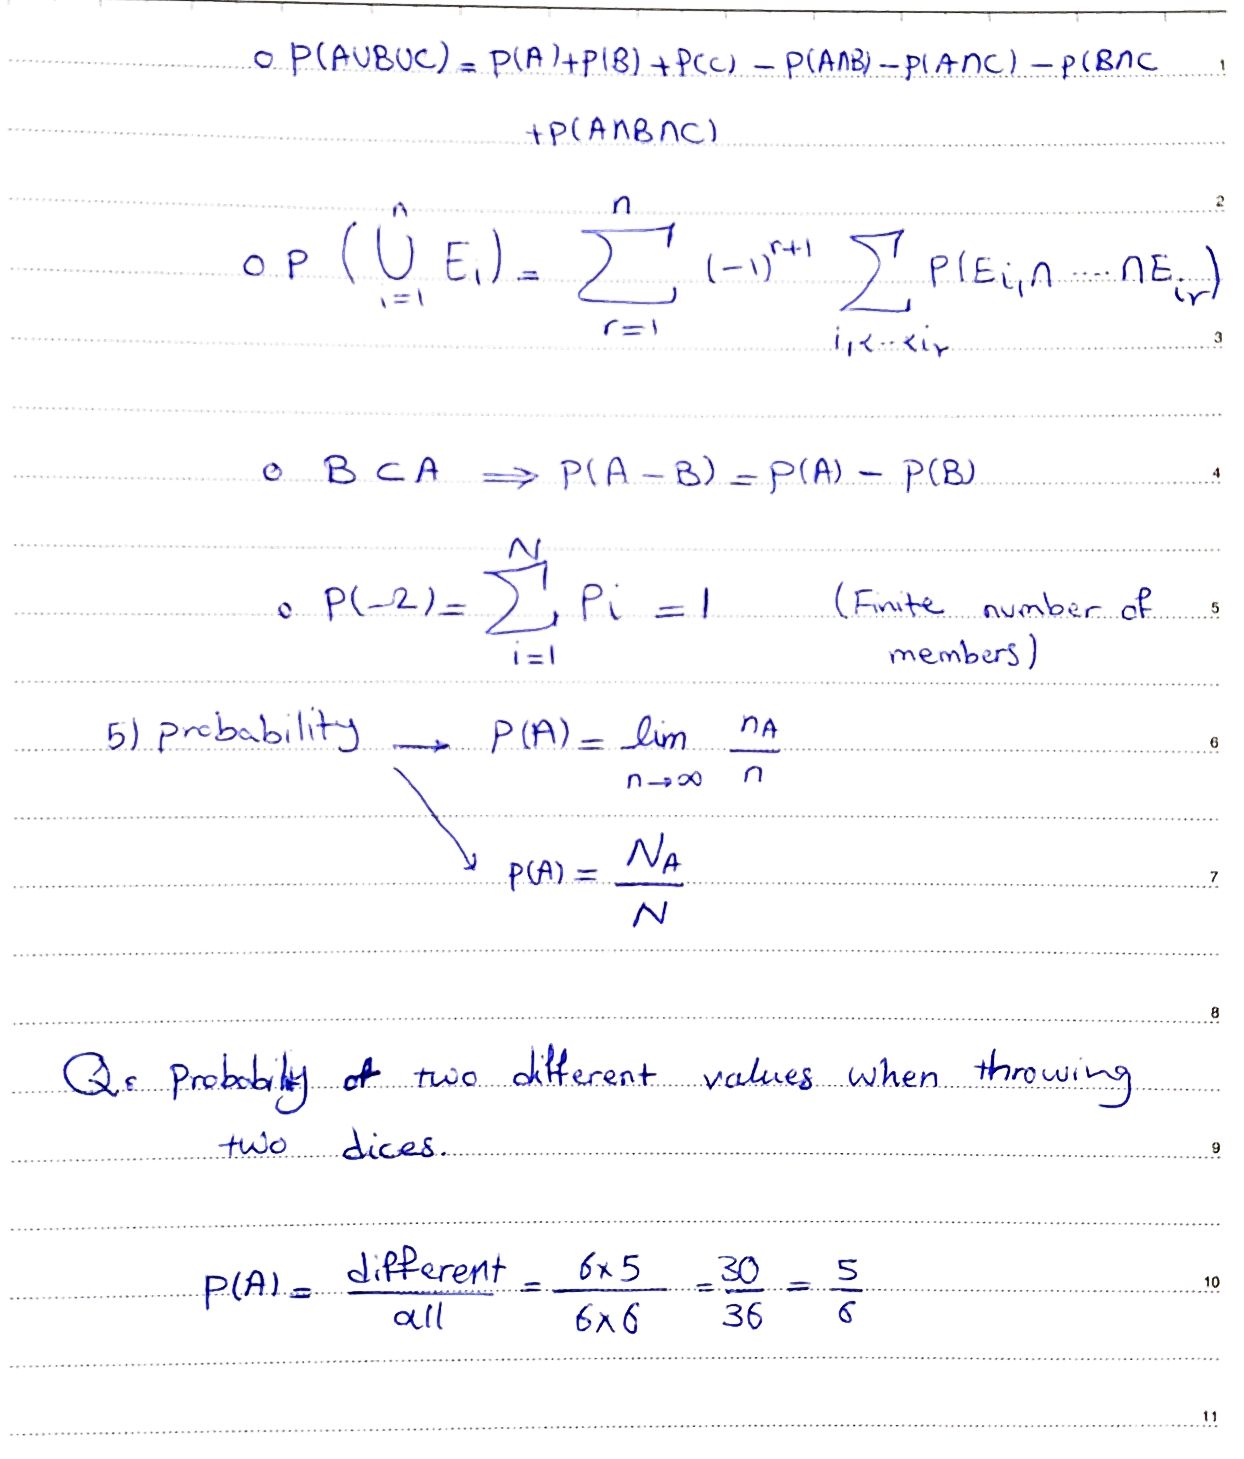 o P(A∪B∪C) = P(A)+P(B)+P(C) - P(A∩B) - P(A∩C) - P(B∩C 1
+P(A∩B∩C)
2
o P (⋃_{i=1}^{n} E_i) = ∑_{r=1}^{n} (-1)^{r+1} ∑_{i_1<..<i_r} P(E_{i_1}∩ .... ∩E_{i_r})
3
o B ⊂ A ⟹ P(A - B) = P(A) - P(B) 4
o P(Ω) = ∑_{i=1}^{N} P_i = 1 (Finite number of 5
members)
5) probability → P(A) = lim_{n→∞} n_A / n 6
↘ P(A) = N_A / N 7
8
Q: Probabily of two different values when throwing
two dices. 9
P(A) = different / all = 6x5 / 6x6 = 30 / 36 = 5 / 6 10
11